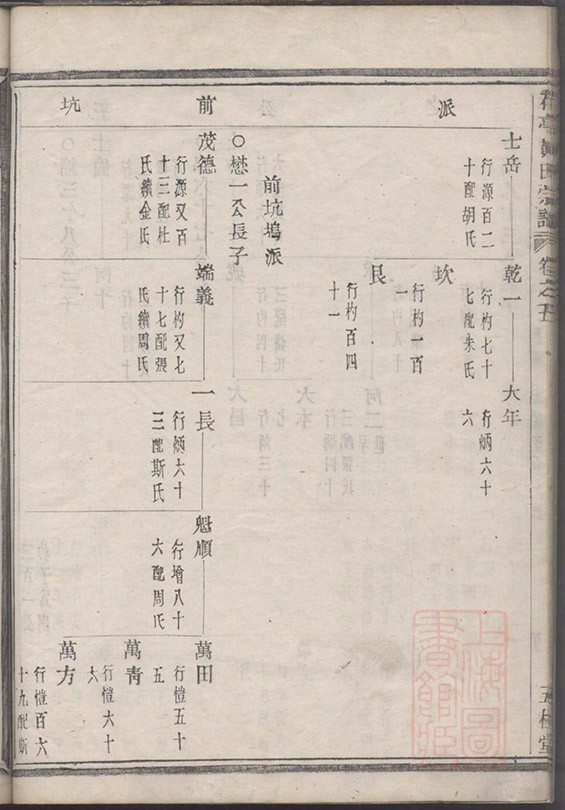 派
前
坑
士岳
行源百二
十配胡氏
乾一
行杓七十
七配朱氏
大年
行炳六十
六
坎
行杓一百
艮
行杓百四
十一
前坑塢派
○懋一公長子
茂德
行源又百
十三配杜
氏續金氏
端義
行杓又七
十七配張
氏續周氏
一長
行炳六十
三配斯氏
魁順
行增八十
六配周氏
萬田
行愷五十
五
萬青
行愷六十
六
萬方
行愷百六
十九配斯
宗譜
卷之五
上海圖
書館